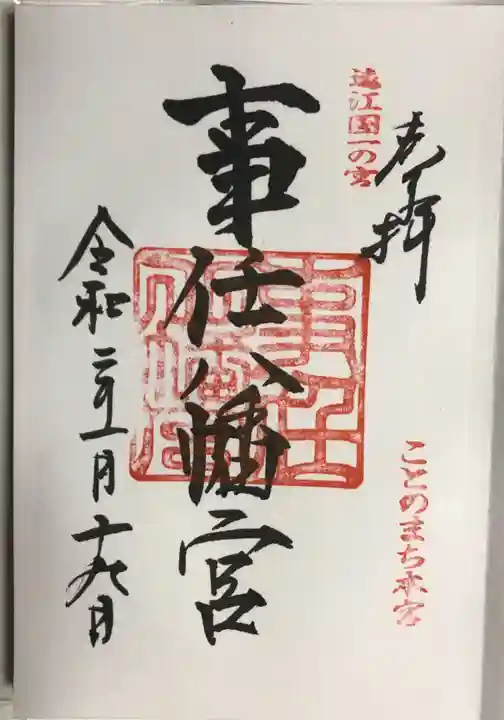 奉拝
遠江国一の宮
ことのまち本宮
事任八幡宮
令和二年一月十九日